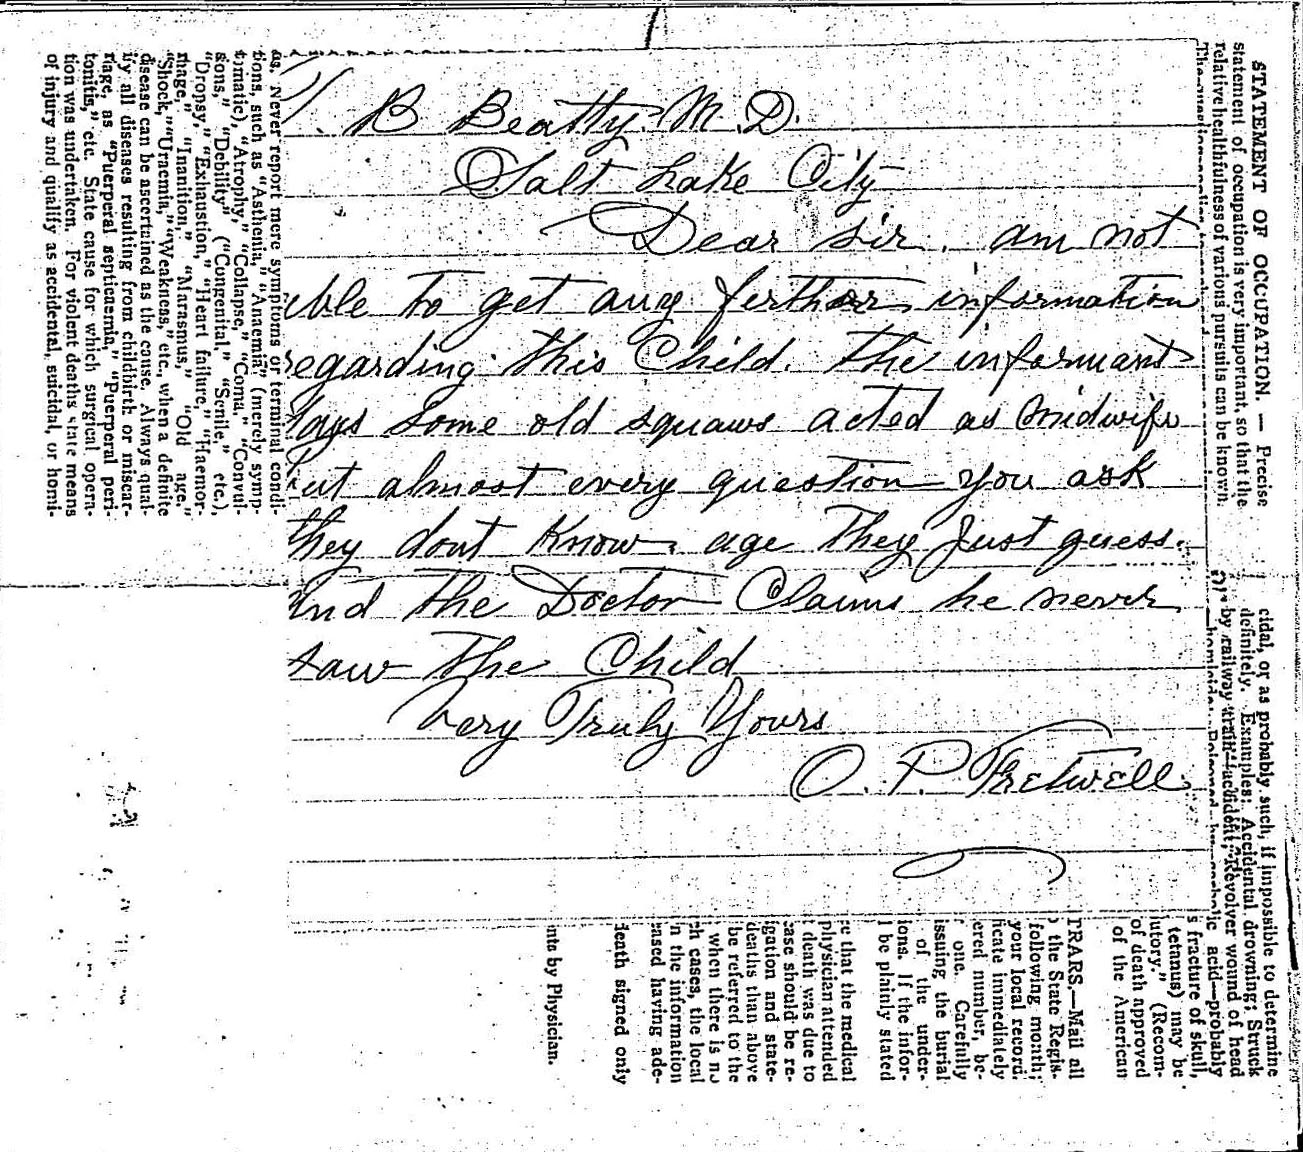 T. B Beatty. M. D.
Salt Lake City
Dear sir. am not
able to get any ferther information
regarding this Child. the informant
says some old squaws acted as midwife
but almost every question you ask
they dont know. age They Just guess.
and the Doctor Claims he never
saw the Child
Very Truly Yours
O. P. Fretwell
STATEMENT OF OCCUPATION. — Precise
statement of occupation is very important, so that the
relative healthfulness of various pursuits can be known.
as. Never report mere symptoms or terminal condi-
tions, such as "Asthenia," "Anaemia" (merely symp-
tomatic), "Atrophy," "Collapse," "Coma," "Convul-
sions," "Debility" ("Congenital," "Senile," etc.),
"Dropsy," "Exhaustion," "Heart failure," "Haemor-
rhage," "Inanition," "Marasmus," "Old age,"
"Shock," "Uraemia," "Weakness," etc., when a definite
disease can be ascertained as the cause. Always qual-
ify all diseases resulting from childbirth or miscar-
riage, as "Puerperal septicaemia," "Puerperal peri-
tonitis," etc. State cause for which surgical opera-
tion was undertaken. For violent deaths state means
of injury and qualify as accidental, suicidal, or homi-
cidal, or as probably such, if impossible to determine
definitely. Examples: Accidental drowning; Struck
by railway train—accident; Revolver wound of head
homicide; Poisoned by carbolic acid—probably
s fracture of skull,
tetanus) may be
utory." (Recom-
of death approved
of the American
TRARS.—Mail all
o the State Regis-
following month;
your local record.
ficate immediately
ered number, be-
r one. Carefully
issuing the burial
of the under-
ions. If the infor-
l be plainly stated
re that the medical
physician attended
t death was due to
case should be re-
igation and state-
deaths than above
be referred to the
when there is no
ch cases, the local
n the information
eased having ade-
death signed only
nte by Physician.